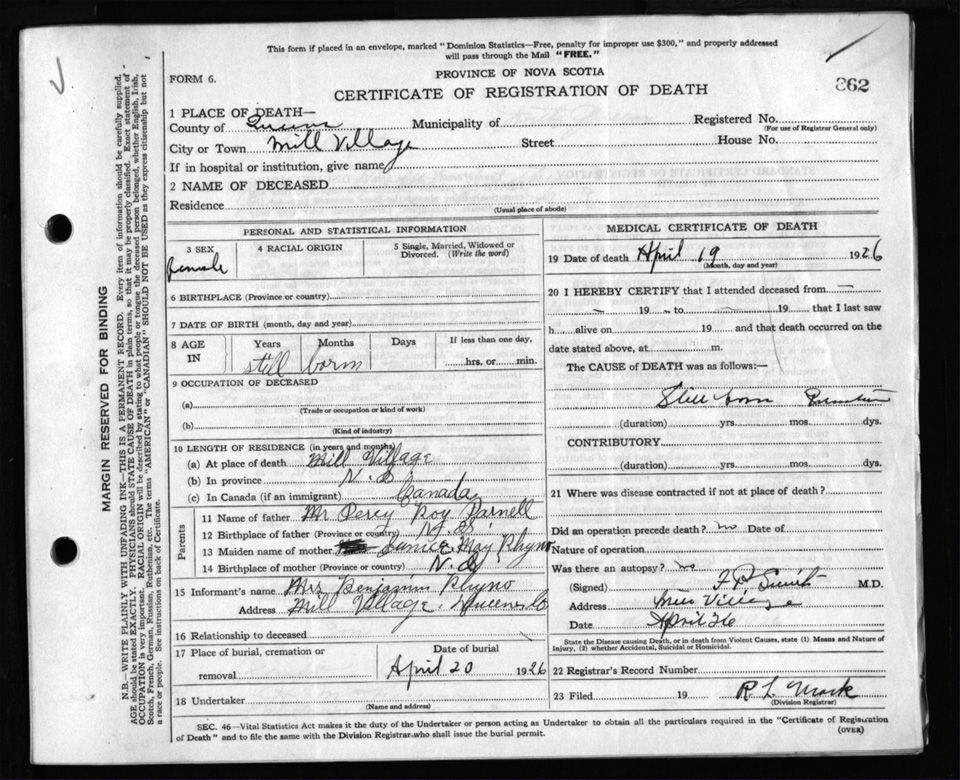 This form if placed in an envelope, marked "Dominion Statistics—Free, penalty for improper use $300," and properly addressed
will pass through the Mail "FREE."
FORM 6.
PROVINCE OF NOVA SCOTIA
CERTIFICATE OF REGISTRATION OF DEATH
362
1 PLACE OF DEATH—
County of Queens Municipality of Registered No.
(For use of Registrar General only)
City or Town Mill Village Street House No.
If in hospital or institution, give name
2 NAME OF DECEASED
Residence
(Usual place of abode)
PERSONAL AND STATISTICAL INFORMATION
3 SEX
Female
4 RACIAL ORIGIN
5 Single, Married, Widowed or
Divorced. (Write the word)
6 BIRTHPLACE (Province or country)
7 DATE OF BIRTH (month, day and year)
8 AGE
IN
Years Months Days If less than one day,
still born hrs. or min.
9 OCCUPATION OF DECEASED
(a)
(Trade or occupation or kind of work)
(b)
(Kind of industry)
10 LENGTH OF RESIDENCE (in years and months)
(a) At place of death Mill Village
(b) In province N. S
(c) In Canada (if an immigrant) Canada
Parents
11 Name of father Mr Percy Roy Parnell
12 Birthplace of father (Province or country) N. S.
13 Maiden name of mother Eunice May Rhyno
14 Birthplace of mother (Province or country) N. S
15 Informant's name Mrs Benjamin Rhyno
Address Mill Village. Queens Co
16 Relationship to deceased
17 Place of burial, cremation or
removal
Date of burial
April 20 1926
18 Undertaker
(Name and address)
MEDICAL CERTIFICATE OF DEATH
19 Date of death April 19 1926
(Month, day and year)
20 I HEREBY CERTIFY that I attended deceased from —
— 19 — to 19 that I last saw
h alive on 19 and that death occurred on the
date stated above, at m.
The CAUSE of DEATH was as follows:—
Still born
(duration) yrs. mos. dys.
CONTRIBUTORY
(duration) yrs. mos. dys.
21 Where was disease contracted if not at place of death?
Did an operation precede death? no Date of
Nature of operation
Was there an autopsy? no
(Signed) F P Smith M.D.
Address Mill Village
Date April 26
State the Disease causing Death, or in death from Violent Causes, state (1) Means and Nature of
Injury, (2) whether Accidental, Suicidal or Homicidal.
22 Registrar's Record Number
23 Filed 19 R L Mack
(Division Registrar)
SEC. 46—Vital Statistics Act makes it the duty of the Undertaker or person acting as Undertaker to obtain all the particulars required in the "Certificate of Registration
of Death" and to file the same with the Division Registrar who shall issue the burial permit.
(OVER)
MARGIN RESERVED FOR BINDING
N.B.—WRITE PLAINLY WITH UNFADING INK—THIS IS A PERMANENT RECORD. Every item of information should be carefully supplied.
AGE should be stated EXACTLY. PHYSICIANS should STATE CAUSE OF DEATH in plain terms, so that it may be properly classified. Exact statement of
OCCUPATION is very important. RACIAL ORIGIN will be described by stating to what people or tongue the deceased person belonged, whether English, Irish,
Scotch, French, German, Russian, Ruthenian, etc. The terms "AMERICAN" or "CANADIAN" SHOULD NOT BE USED as they express citizenship but not
a race or people. See instructions on back of Certificate.